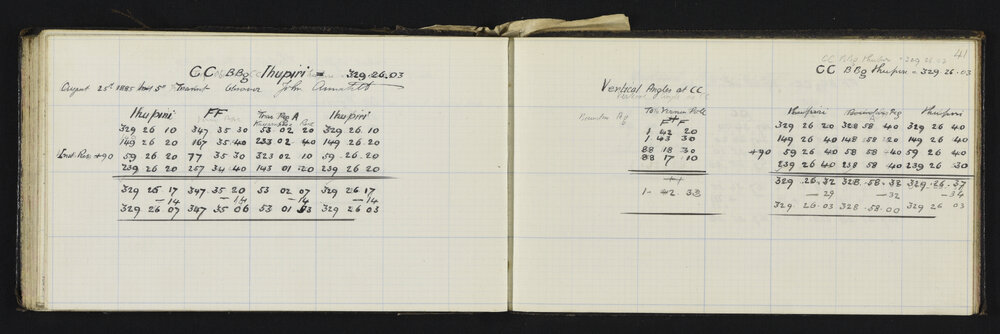 CC BBg Ihupiri = 329.26.03
August 25th 1885 Inst 5" Transit Observer John Annabell
Ihupiri FF Trav Peg A Ihupiri
329 26 10 347 35 30 53 02 20 329 26 10
149 26 20 167 35 40 233 02 40 149 26 20
Inst Rev +90 59 26 20 77 35 30 323 02 10 59 26 20
239 26 20 257 34 40 143 01 20 239 26 20
329 26 17 347 35 20 53 02 07 329 26 17
- 14 - 14 - 14 - 14
329 26 07 347 35 06 53 01 53 329 26 03
41
CC BBg Ihupiri = 329 26 03
CC BBg Ihupiri = 329 26.03
Vertical Angles at CC
Top Vernier Pole
FF
1 42 20
1 43 30
88 18 30
88 17 10
++
1 - 42 33
Ihupiri Boundary Peg Ihupiri
329 26 20 328 58 40 329 26 40
149 26 40 148 58 20 149 26 40
+90 59 26 40 58 58 40 59 26 40
239 26 40 238 58 40 239 26 30
329.26.32 328.58.32 329.26.37
- 29 - 32 - 34
329 26.03 328.58.00 329 26 03